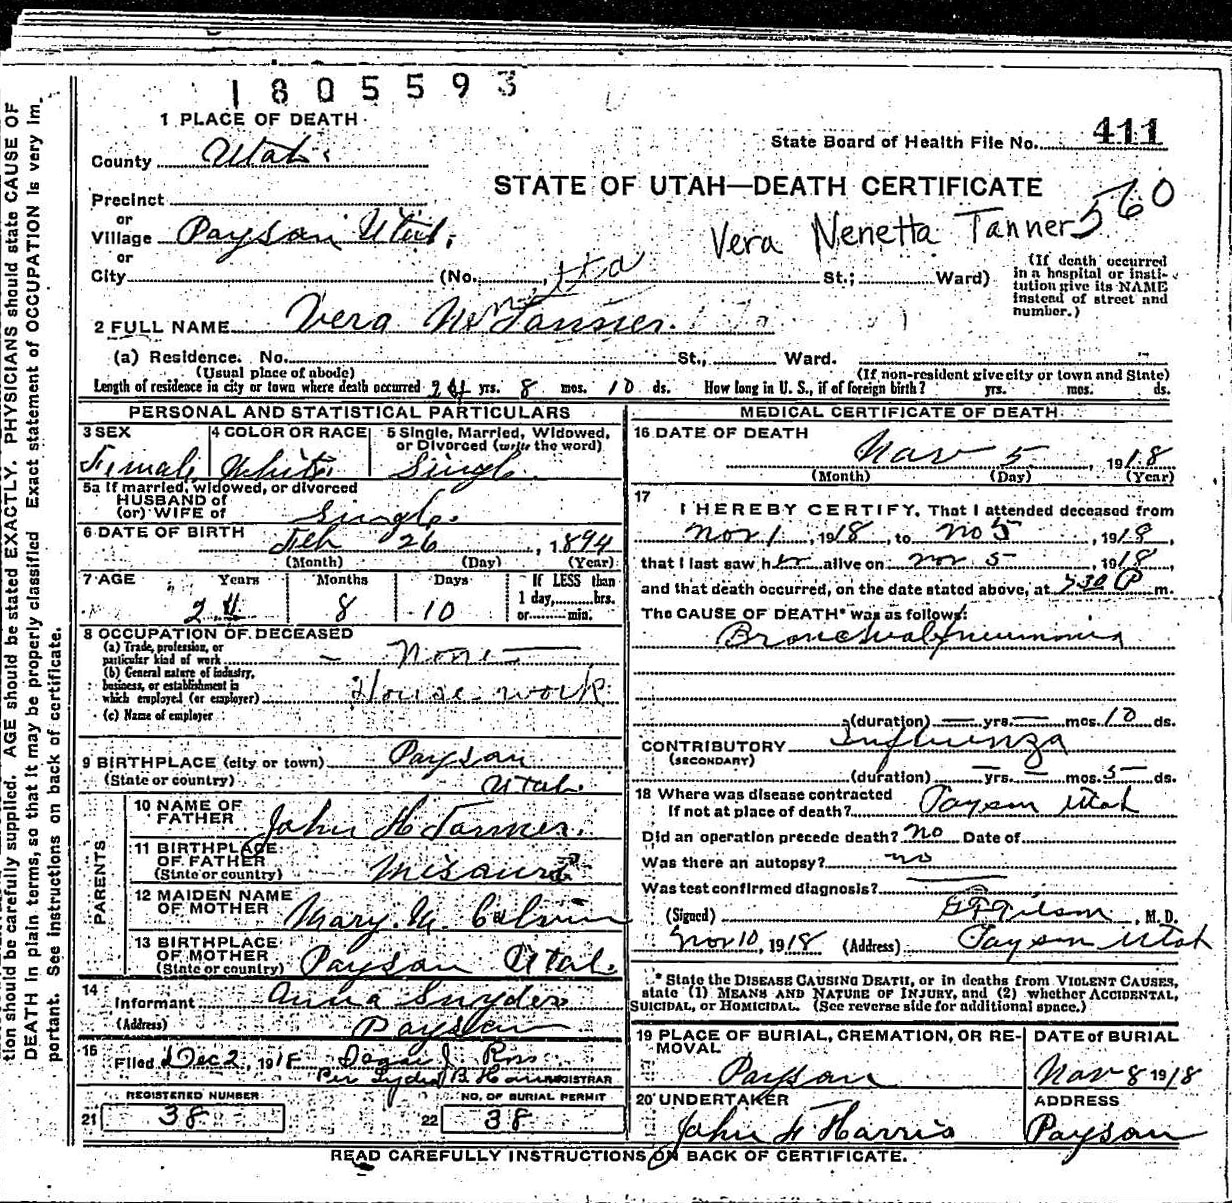 1805593
1 PLACE OF DEATH
State Board of Health File No. 411
County Utah
STATE OF UTAH—DEATH CERTIFICATE
Precinct
560
or
Village Payson Utah
Vera Nenetta Tanner
or
City (No. St.; Ward)
(If death occurred
in a hospital or insti-
tution give its NAME
instead of street and
number.)
tta
2 FULL NAME Vera Ne Tanner
(a) Residence. No. St., Ward.
(Usual place of abode) (If non-resident give city or town and State)
Length of residence in city or town where death occurred 24 yrs. 8 mos. 10 ds. How long in U. S., if of foreign birth? yrs. mos. ds.
PERSONAL AND STATISTICAL PARTICULARS
3 SEX 4 COLOR OR RACE 5 Single, Married, Widowed,
or Divorced (write the word)
Female White Single
5a If married, widowed, or divorced
HUSBAND of
(or) WIFE of Single
6 DATE OF BIRTH Feb 26, 1894
(Month) (Day) (Year)
7 AGE Years Months Days If LESS than
1 day,......hrs.
24 8 10 or......min.
8 OCCUPATION OF DECEASED
(a) Trade, profession, or
particular kind of work — None —
(b) General nature of industry,
business, or establishment in
which employed (or employer) House work
(c) Name of employer
9 BIRTHPLACE (city or town) Payson
(State or country) Utah
PARENTS
10 NAME OF
FATHER John H Tanner
11 BIRTHPLACE
OF FATHER
(State or country) Misouri
12 MAIDEN NAME
OF MOTHER Mary M
13 BIRTHPLACE
OF MOTHER
(State or country) Payson Utah
14
Informant Anna Snyder
(Address) Payson
15
Filed Dec 2, 1918 J. Ross
Per Lydia B REGISTRAR
REGISTERED NUMBER NO. OF BURIAL PERMIT
21 38 22 38
MEDICAL CERTIFICATE OF DEATH
16 DATE OF DEATH
Nov 5, 1918
(Month) (Day) (Year)
17
I HEREBY CERTIFY, That I attended deceased from
Nov 1, 1918, to No 5, 1918,
that I last saw her alive on Nov 5, 1918,
and that death occurred, on the date stated above, at 530 P m.
The CAUSE OF DEATH* was as follows:
Bronchial pneumonia
(duration) — yrs. — mos. 10 ds.
CONTRIBUTORY Influenza
(SECONDARY)
(duration) — yrs. — mos. 5 ds.
18 Where was disease contracted
if not at place of death? Payson Utah
Did an operation precede death? No Date of
Was there an autopsy? no
Was test confirmed diagnosis?
(Signed) , M. D.
Nov 10, 1918 (Address) Payson Utah
* State the DISEASE CAUSING DEATH, or in deaths from VIOLENT CAUSES,
state (1) MEANS AND NATURE OF INJURY, and (2) whether ACCIDENTAL,
SUICIDAL, or HOMICIDAL. (See reverse side for additional space.)
19 PLACE OF BURIAL, CREMATION, OR RE-
MOVAL
Payson
DATE of BURIAL
Nov 8 1918
20 UNDERTAKER
John F Harris
ADDRESS
Payson
READ CAREFULLY INSTRUCTIONS ON BACK OF CERTIFICATE.
tion should be carefully supplied. AGE should be stated EXACTLY. PHYSICIANS should state CAUSE OF
DEATH in plain terms, so that it may be properly classified. Exact statement of OCCUPATION is very im-
portant. See Instructions on back of certificate.